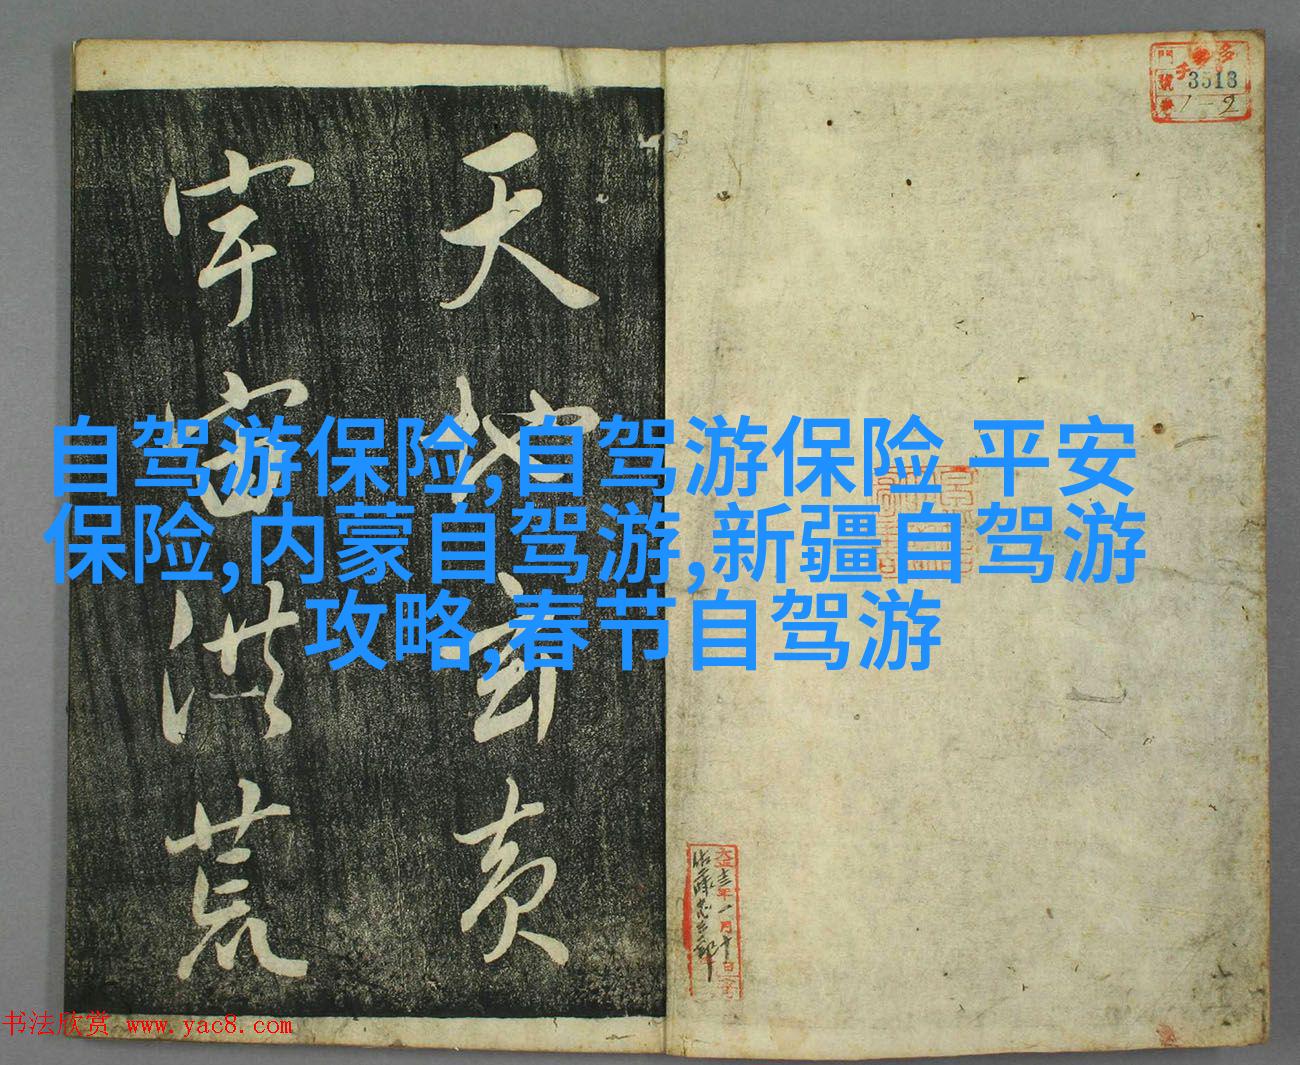 天地玄黄
宇宙洪荒
3513
1-2
自驾游保险,自驾游保险 平安
保险,内蒙自驾游,新疆自驾游
攻略,春节自驾游
大正十三年一月十日
书法欣赏 www.yac8.com